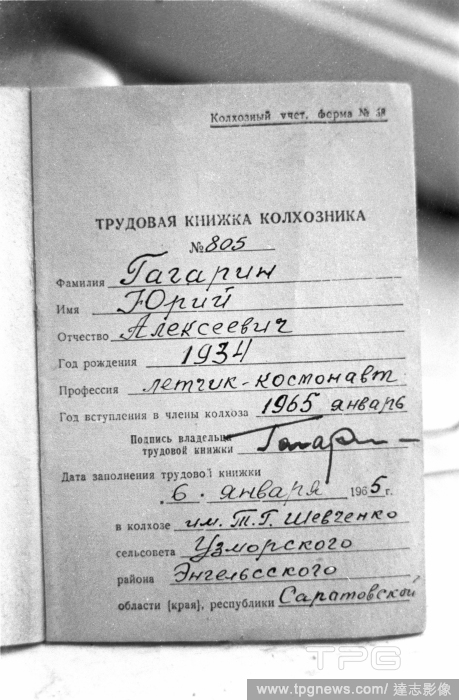 Колхозный учет, форма №
ТРУДОВАЯ КНИЖКА КОЛХОЗНИКА
№ 805
Фамилия Гагарин
Имя Юрий
Отчество Алексеевич
Год рождения 1934
Профессия летчик-космонавт
Год вступления в члены колхоза 1965 январь
Подпись владельца
трудовой книжки Гагарин
Дата заполнения трудовой книжки
6. января 1965 г.
в колхозе им. Т.Г. Шевченко
сельсовета Узморского
района Энгельсского
области (края), республики Саратовской
TPG
www.tpgnews.com/達志影像